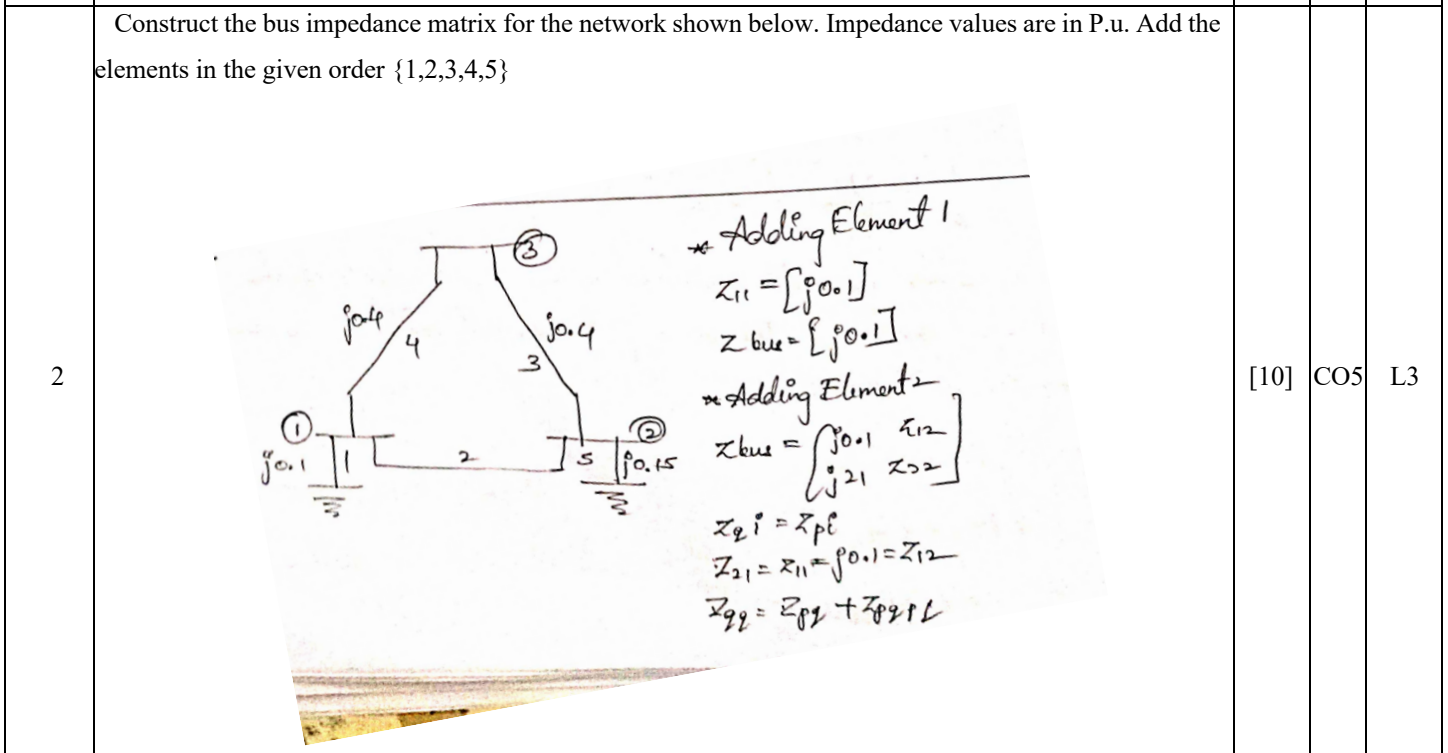 Construct the bus impedance matrix for the network shown below. Impedance values are in P.u. Add the
elements in the given order {1,2,3,4,5}
2
[10]
CO5
L3
3
j0.4
4
j0.4
3
1
j0.1
1
2
2
5
j0.15
* Adding Element 1
Z11 = [j0.1]
Z bus = [j0.1]
* Adding Element 2
Zbus = [j0.1 Z12
j21 Z22]
Zqi = Zpi
Z21 = Z11 = j0.1 = Z12
Zqq = Zpq + Zpqpq